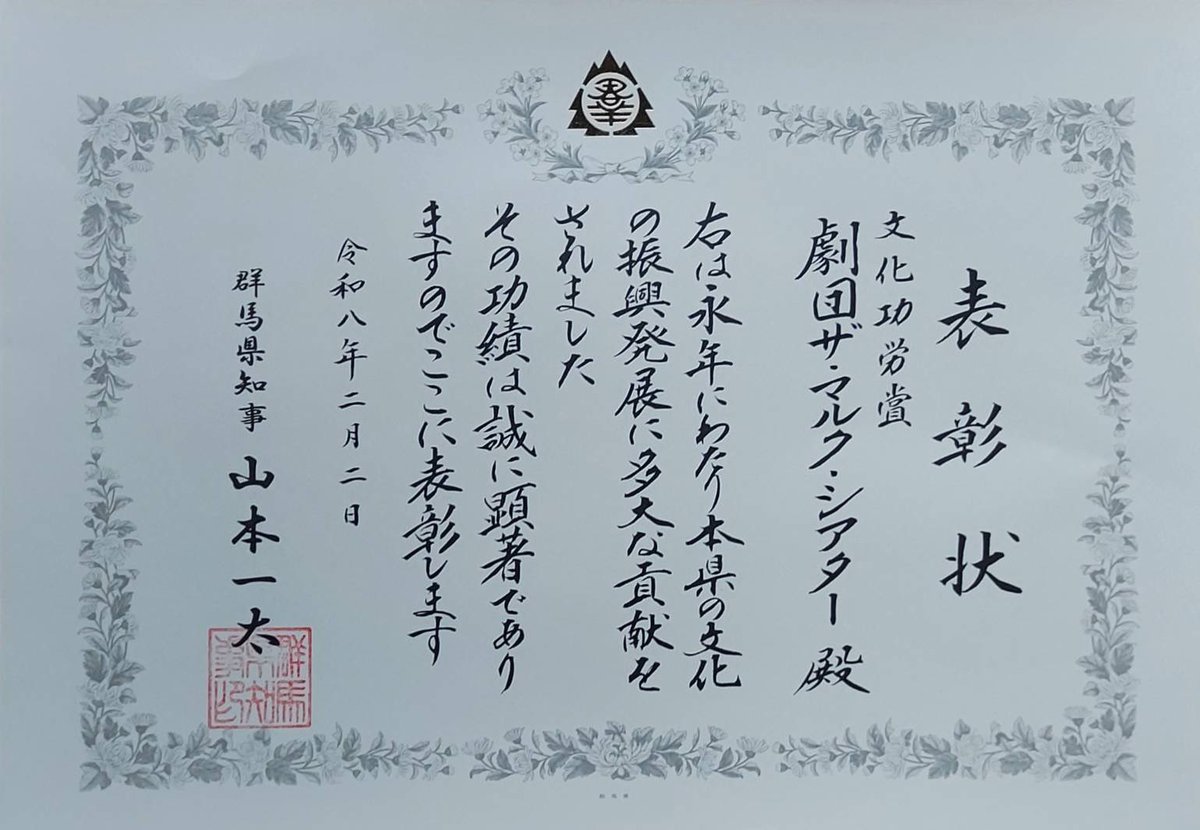 表彰状
文化功労賞
劇団ザ・マルク・シアター 殿
右は永年にわたり本県の文化
の振興発展に多大な貢献を
されました
その功績は誠に顕著であり
ますのでここに表彰します
令和八年二月二日
群馬県知事 山本一太
群馬県知事印